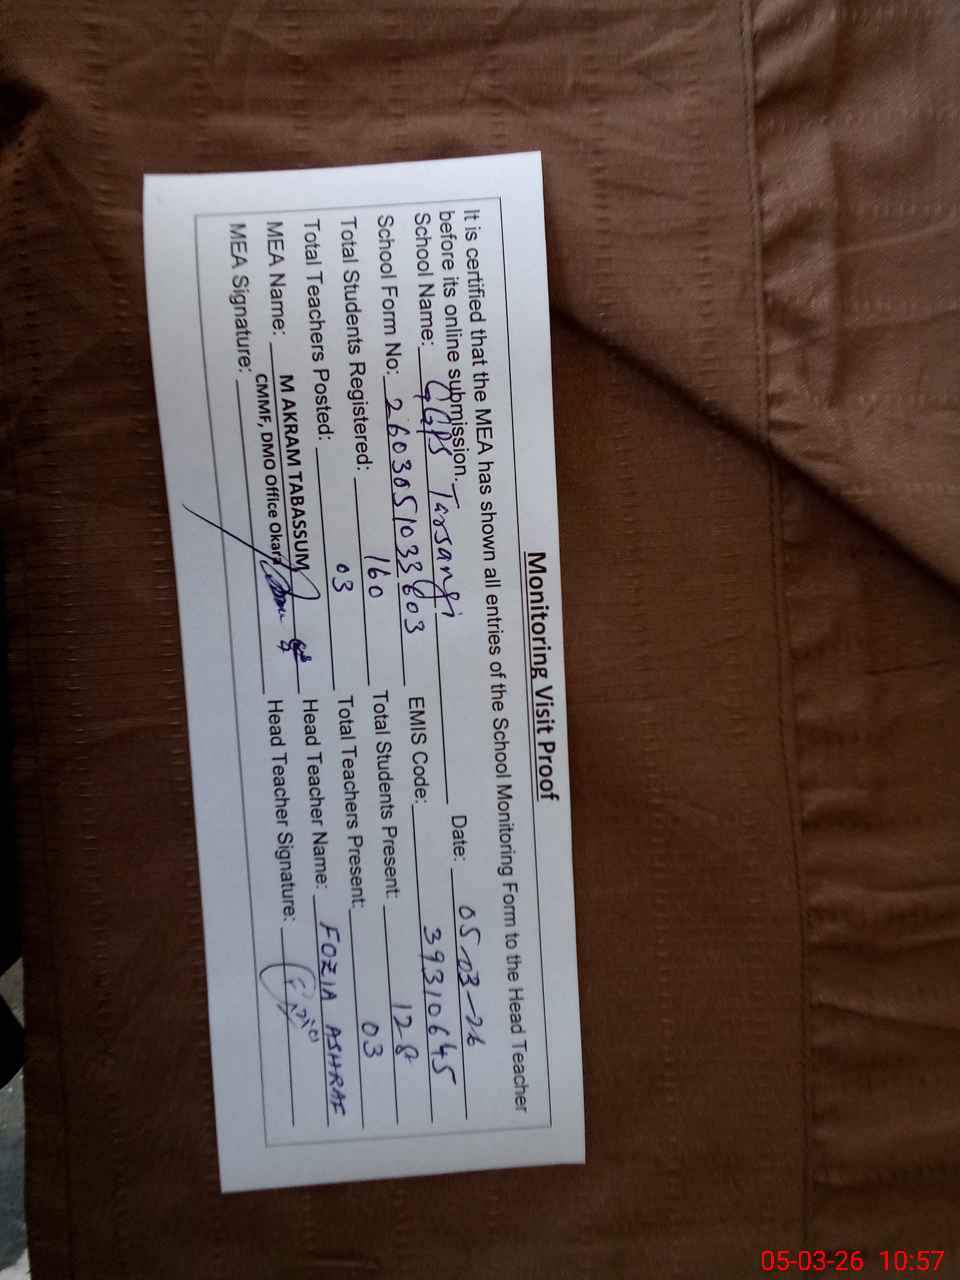 Monitoring Visit Proof
It is certified that the MEA has shown all entries of the School Monitoring Form to the Head Teacher
before its online submission.
School Name: GGPS Tassangi Date: 05-03-26
School Form No: 2603051033603 EMIS Code: 39310645
Total Students Registered: 160 Total Students Present: 128
Total Teachers Posted: 03 Total Teachers Present: 03
MEA Name: M AKRAM TABASSUM Head Teacher Name: FOZIA ASHRAF
CMMF, DMO Office Okara
MEA Signature: Head Teacher Signature: Fozia
05-03-26 10:57